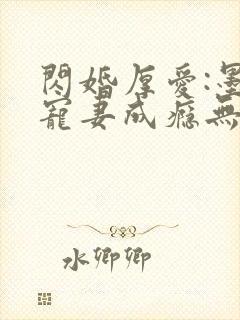 閃婚厚愛:墨
寵妻成癮無
水卿卿